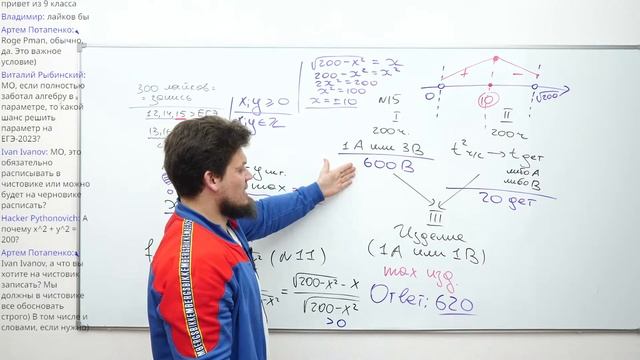 привет из 9 класса
Владимир: лайков бы
Артем Потапенко:
Roge Pman, обычно,
да. Это важное
условие)
Виталий Рыбинский:
МО, если полностью
заботал алгебру в
параметре, то какой
шанс решить
параметр на
ЕГЭ-2023?
Ivan Ivanov: МО, это
обязательно
расписывать в
чистовике или можно
будет на черновике
расписать?
Hacker Pythonovich: А
почему x^2 + y^2 =
200?
Артем Потапенко:
Ivan Ivanov, а что вы
хотите на чистовик
записать? Мы
должны в чистовике
все обосновать
строго) В том числе и
словами, если нужно)
300 лайков =
= запись
12,14,15 > ЕГЭ
x,y ≥ 0
x,y ∈ Z
√200-x² = x
200-x² = x²
2x² = 200
x² = 100
x = ±10
+
−
0
10
√200
N15
I
200ч.
1А или 3В
600 В
II
200ч.
t² ч/с → t дет
либо А
либо В
20 дет
III
Изделие
(1А или 1В)
max изд.
Ответ: 620
(N11)
√200-x² - x
=
√200-x²
>0